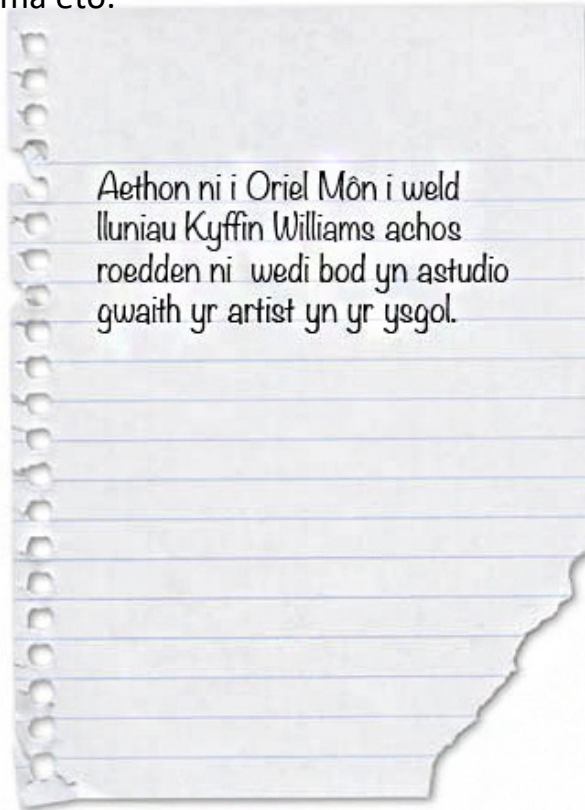 ma eto.
Aethon ni i Oriel Môn i weld
lluniau Kyffin Williams achos
roedden ni wedi bod yn astudio
gwaith yr artist yn yr ysgol.